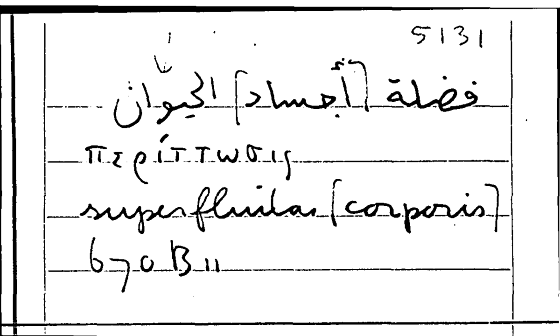 5131
فضلة [أجساد] الحيوان
περίττωσις
superfluitas [corporis]
670 B 11